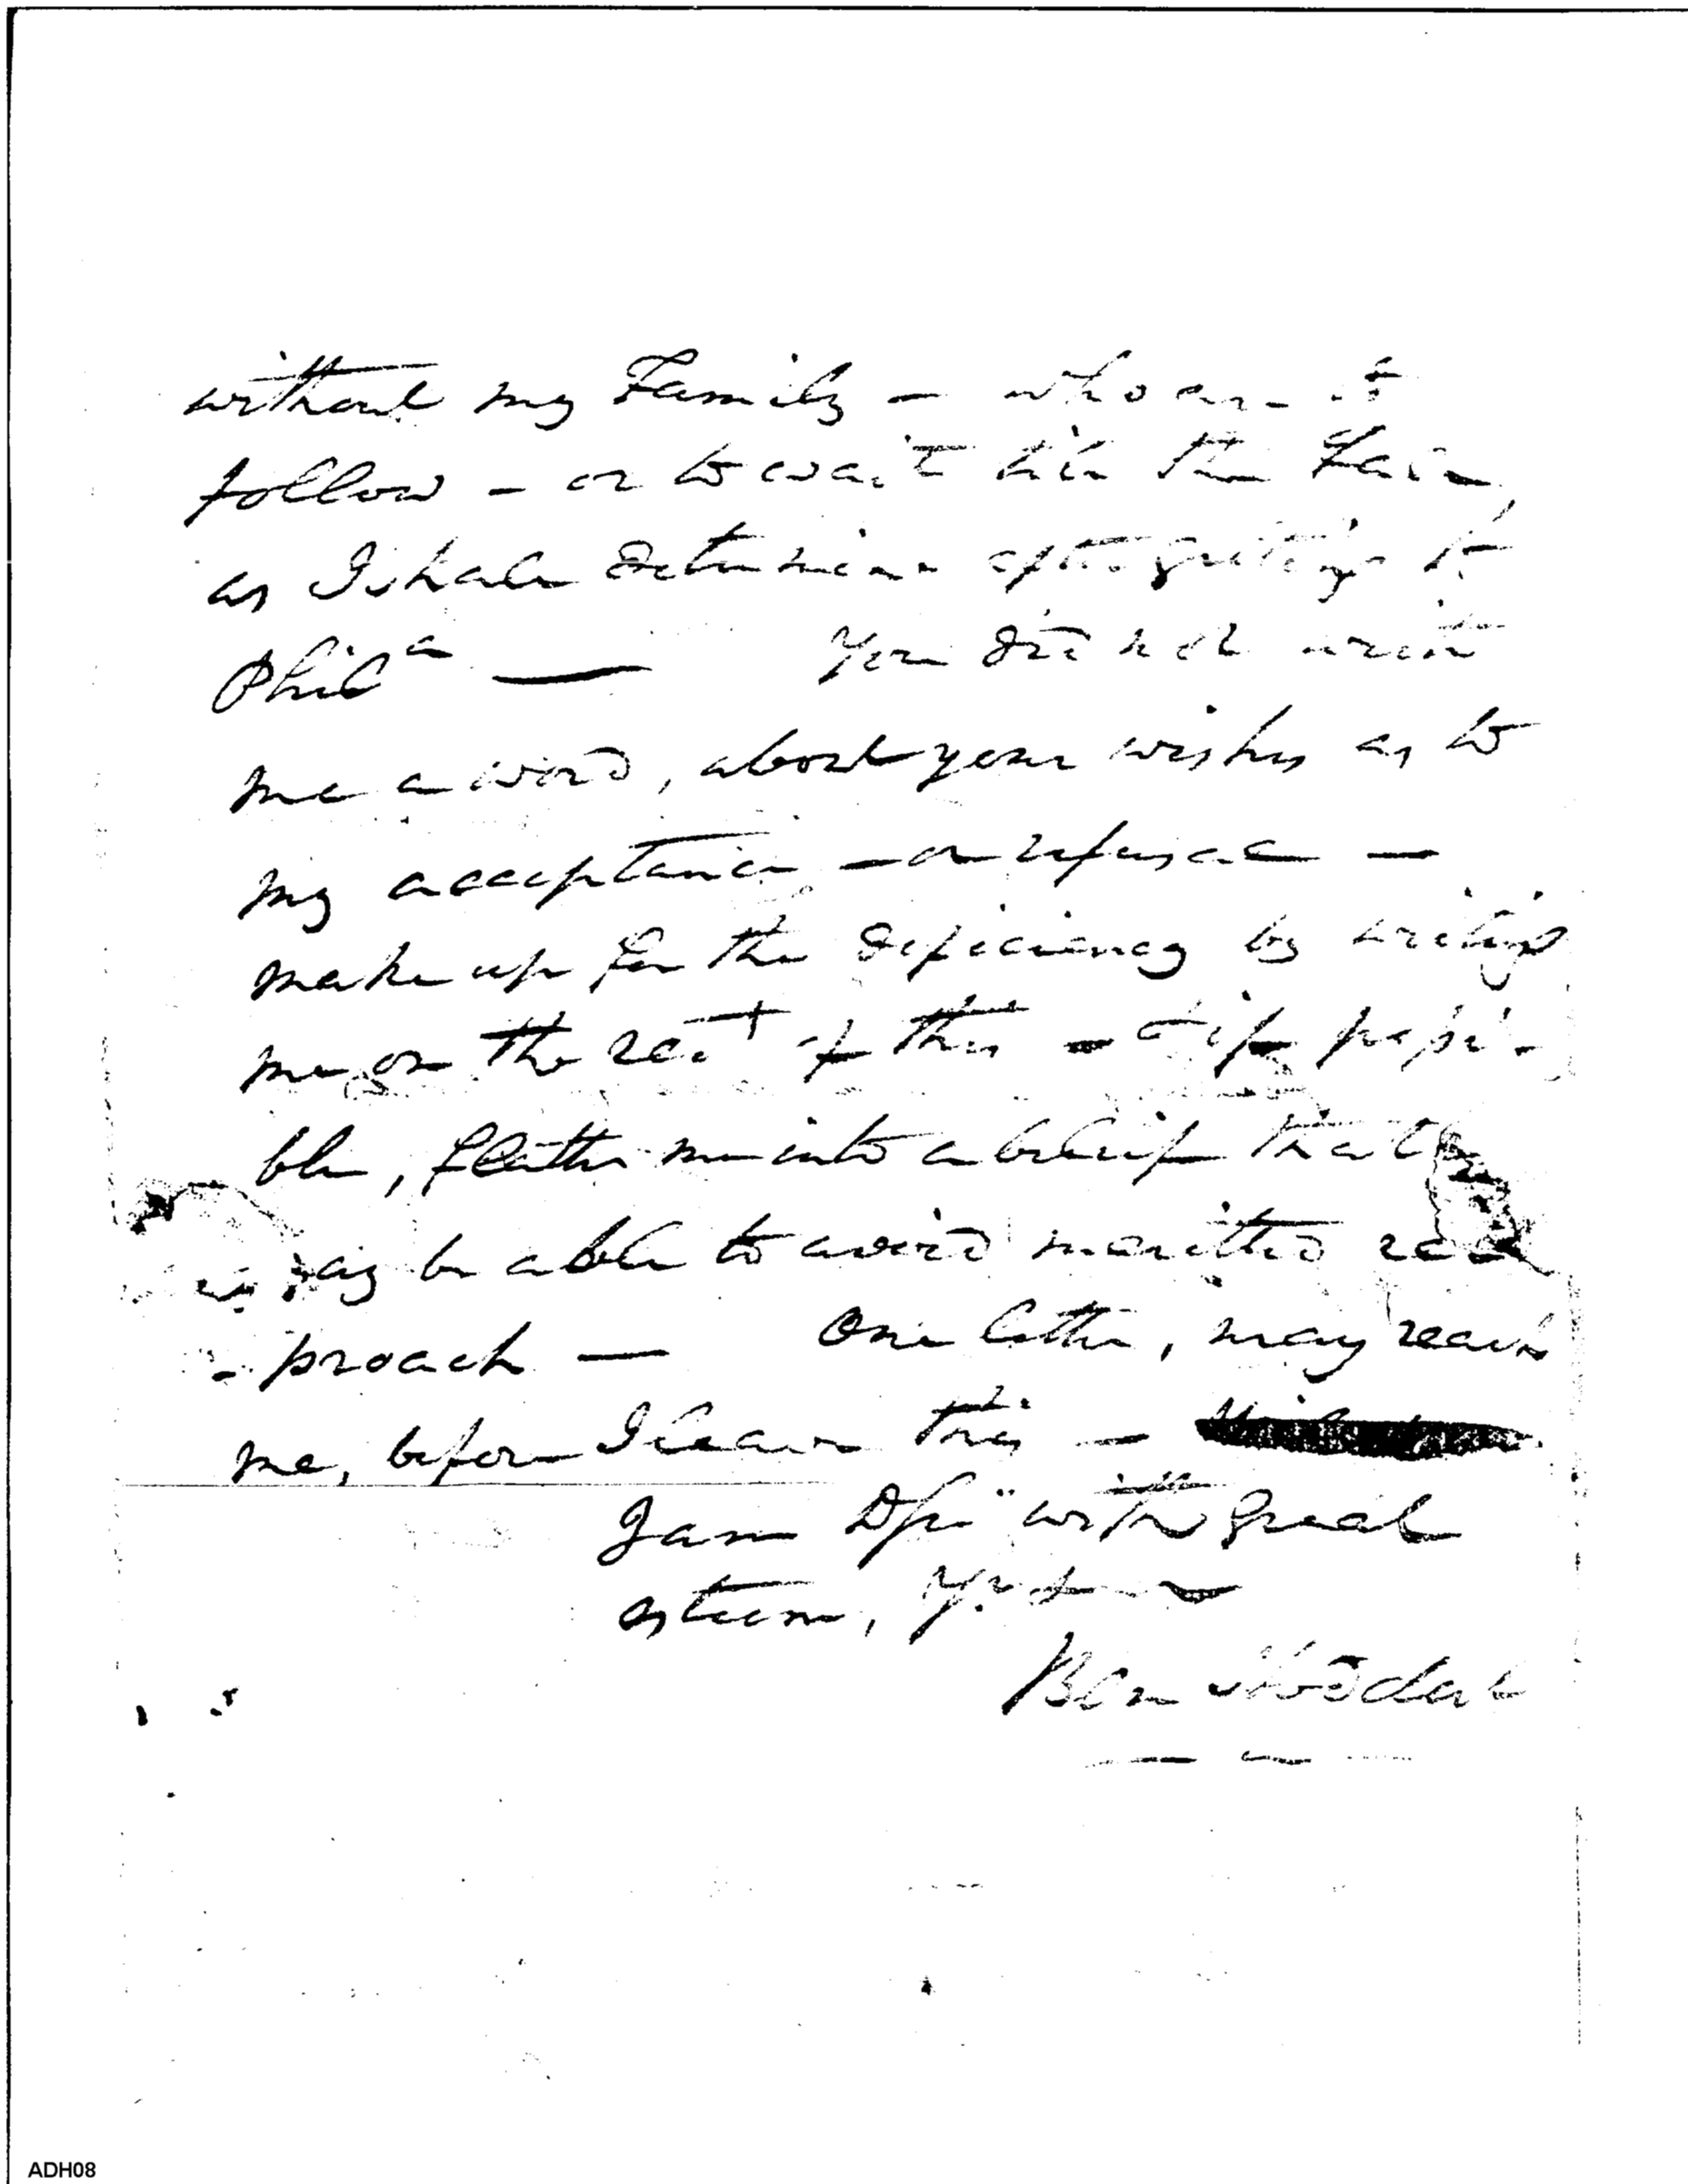 without my Family — who are to
follow — or to wait till the
as I shall determine after getting to
Phila —— You did not write
me a word, about your wishes as to
my acceptance — or refusal —
make up for the deficiency by writing
me on the rect of this — & if possi-
ble, flatter me into a belief that
may be able to avoid meritted re
- proach — One letter, may reach
me, before I leave this —
I am D Sir with great
esteem, Yr
Ben Stoddert
ADH08